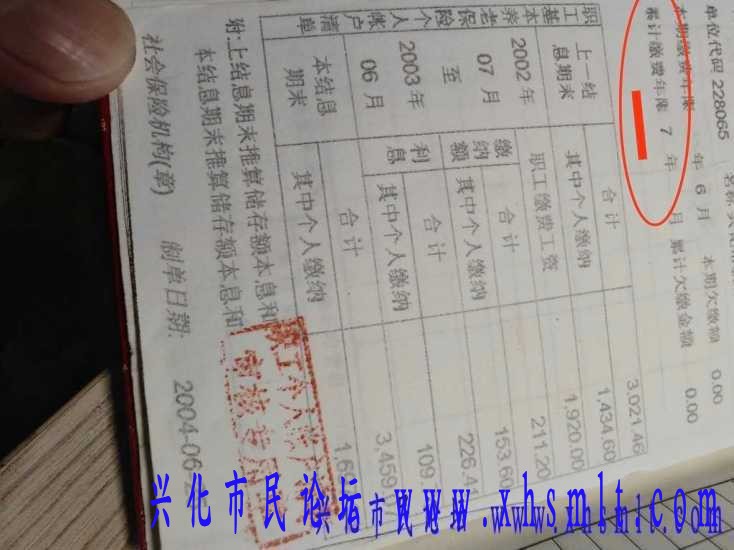 单位代码 228065
本期缴费年限 年 6 月 本期欠缴额 0.00
累计缴费年限 7 年 月 累计欠缴金额 0.00
职工基本养老保险个人账户清单
上一结息期末 合计 3,021.46
其中个人缴纳 1,434.60
2002年07月至2003年06月
职工缴费工资 1,920.00
缴纳额 合计 211.20
其中个人缴纳 153.60
利息 合计 226.4
其中个人缴纳 109.
本结息期末 合计 3,459
其中个人缴纳 1,69
附:上结息期末推算储存额本息和
本结息期末推算储存额本息和
社会保险机构(章) 制单日期: 2004-06
兴化市民论坛 www.xhsmlt.com